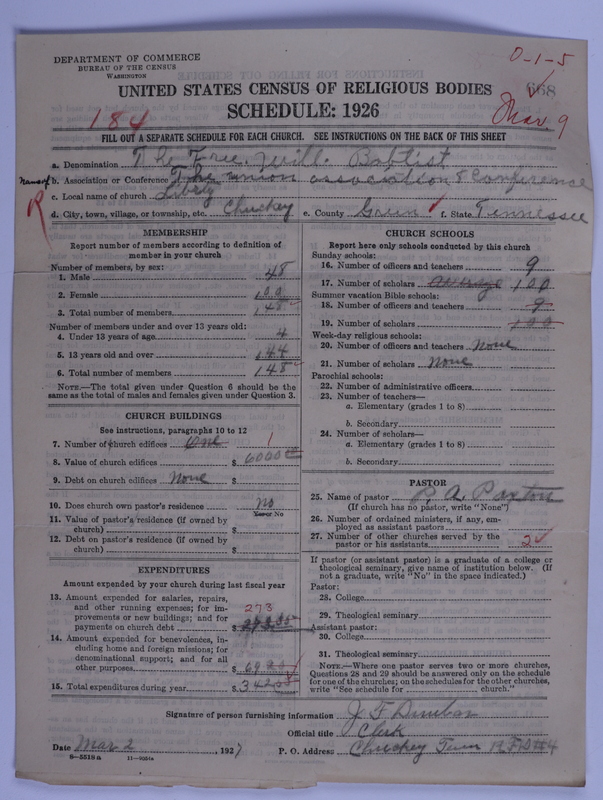 DEPARTMENT OF COMMERCE
BUREAU OF THE CENSUS
WASHINGTON
0-1-5
UNITED STATES CENSUS OF RELIGIOUS BODIES
SCHEDULE: 1926
184
Mar 9
FILL OUT A SEPARATE SCHEDULE FOR EACH CHURCH. SEE INSTRUCTIONS ON THE BACK OF THIS SHEET
a. Denomination The Free Will Baptist
b. Association or Conference The union association & Conference
c. Local name of church Liberty
R
d. City, town, village, or township, etc. Chuckey e. County Green f. State Tennessee
MEMBERSHIP
Report number of members according to definition of member in your church
Number of members, by sex:
1. Male 48
2. Female 100
3. Total number of members 148
Number of members under and over 13 years old:
4. Under 13 years of age 4
5. 13 years old and over 144
6. Total number of members 148
NOTE.—The total given under Question 6 should be the same as the total of males and females given under Question 3.
CHURCH BUILDINGS
See instructions, paragraphs 10 to 12
7. Number of church edifices One 1
8. Value of church edifices $ 6000 00
9. Debt on church edifices None $
10. Does church own pastor's residence No
Yes or No
11. Value of pastor's residence (if owned by church) $
12. Debt on pastor's residence (if owned by church) $
EXPENDITURES
Amount expended by your church during last fiscal year
13. Amount expended for salaries, repairs, and other running expenses; for improvements or new buildings; and for payments on church debt $ 273
14. Amount expended for benevolences, including home and foreign missions; for denominational support; and for all other purposes $ 69 20
15. Total expenditures during year $ 342
CHURCH SCHOOLS
Report here only schools conducted by this church
Sunday schools:
16. Number of officers and teachers 9
17. Number of scholars average 100
Summer vacation Bible schools:
18. Number of officers and teachers 9
19. Number of scholars 100
Week-day religious schools:
20. Number of officers and teachers None
21. Number of scholars None
Parochial schools:
22. Number of administrative officers
23. Number of teachers—
a. Elementary (grades 1 to 8)
b. Secondary
24. Number of scholars—
a. Elementary (grades 1 to 8)
b. Secondary
PASTOR
25. Name of pastor P. A. Paxton
(If church has no pastor, write "None")
26. Number of ordained ministers, if any, employed as assistant pastors
27. Number of other churches served by the pastor or his assistants 2
If pastor (or assistant pastor) is a graduate of a college or theological seminary, give name of institution below. (If not a graduate, write "No" in the space indicated.)
Pastor:
28. College
29. Theological seminary
Assistant pastor:
30. College
31. Theological seminary
NOTE.—Where one pastor serves two or more churches, Questions 28 and 29 should be answered only on the schedule for one of the churches; on the schedules for the other churches, write "See schedule for church."
Signature of person furnishing information J F Dunbar
Official title Clerk
Date Mar 2, 1927 P. O. Address Chuckey Tenn R.F.D #4
8-5518a 11-9054a